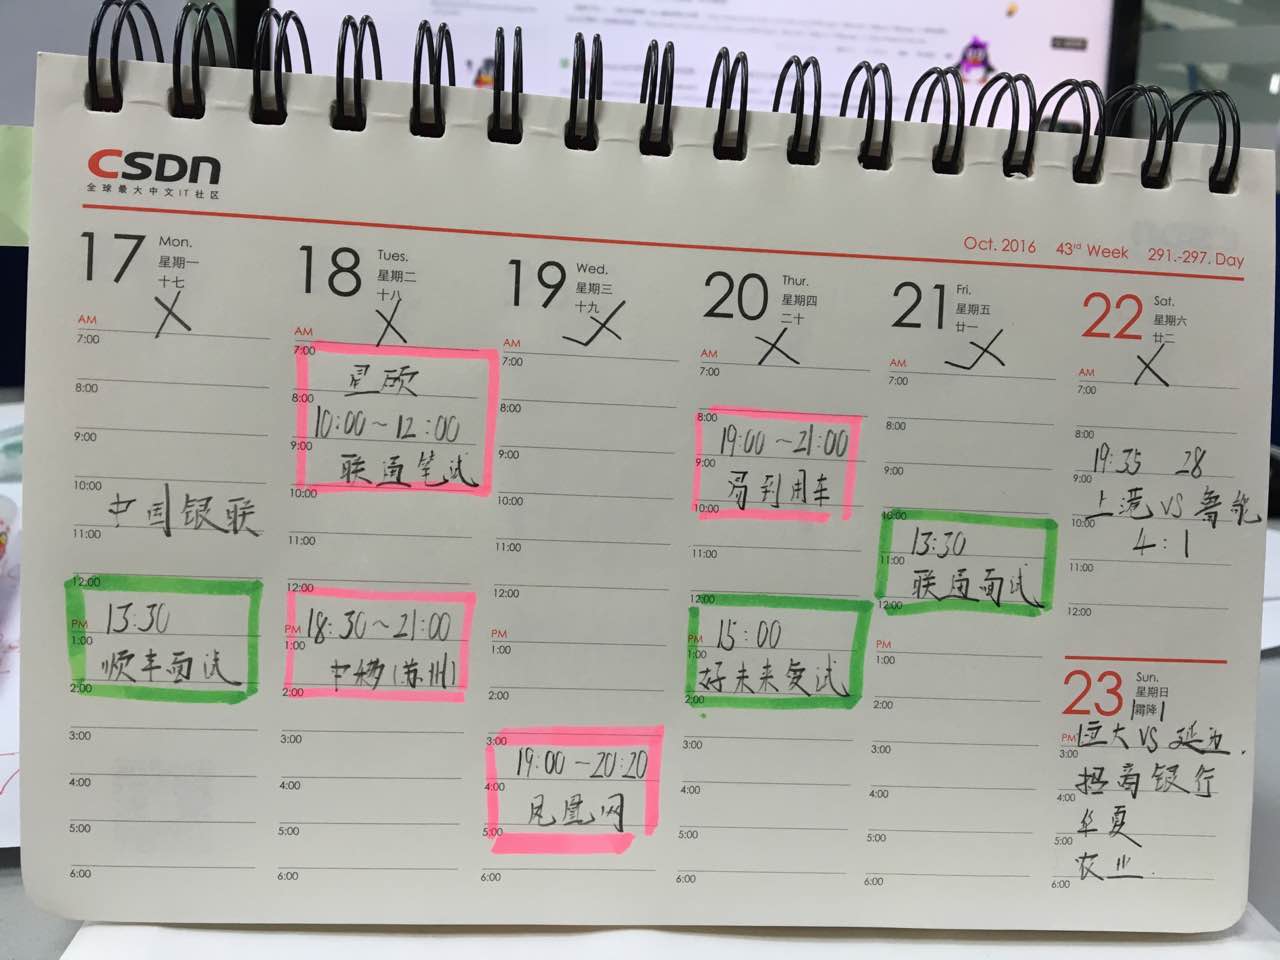 CSDN
全球最大中文IT社区
Oct. 2016 43rd Week 291.-297. Day
17 Mon.
星期一
十七
AM
7:00
8:00
9:00
10:00
中国银联
11:00
12:00
13:30
PM
1:00
顺丰面试
2:00
3:00
4:00
5:00
6:00
18 Tues.
星期二
十八
AM
7:00
8:00
10:00~12:00
9:00
联通笔试
10:00
11:00
12:00
18:30~21:00
PM
1:00
(苏州)
2:00
3:00
4:00
5:00
6:00
19 Wed.
星期三
十九
AM
7:00
8:00
9:00
10:00
11:00
12:00
PM
1:00
2:00
3:00
19:00-20:20
4:00
凤凰网
5:00
6:00
20 Thur.
星期四
二十
AM
7:00
8:00
19:00~21:00
9:00
易到用车
10:00
11:00
12:00
15:00
PM
1:00
好未来复试
2:00
3:00
4:00
5:00
6:00
21 Fri.
星期五
廿一
AM
7:00
8:00
9:00
10:00
13:30
11:00
联通面试
12:00
PM
1:00
2:00
3:00
4:00
5:00
6:00
22 Sat.
星期六
廿二
AM
7:00
8:00
19:35 28
9:00
上港VS鲁能
10:00
4:1
11:00
12:00
23 Sun.
星期日
霜降
PM
恒大VS延边.
3:00
招商银行
4:00
华夏
5:00
农业.
6:00